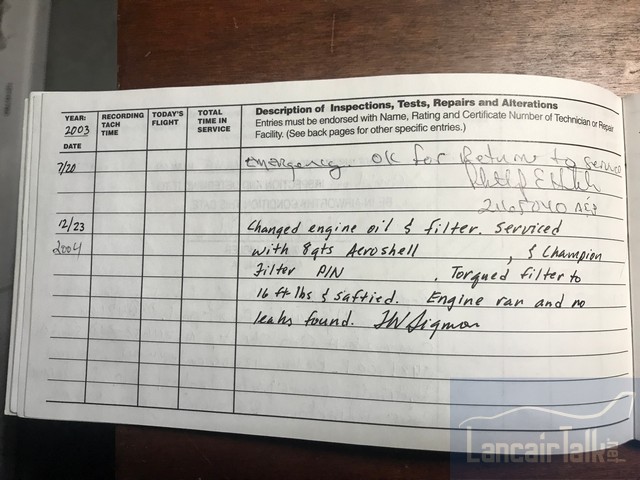 YEAR: 2003
DATE
RECORDING TACH TIME
TODAY'S FLIGHT
TOTAL TIME IN SERVICE
Description of Inspections, Tests, Repairs and Alterations
Entries must be endorsed with Name, Rating and Certificate Number of Technician or Repair
Facility. (See back pages for other specific entries.)
7/20 emergency OK for Return to service
12/23 Changed engine oil & filter. Serviced
2004 with 8qts Aeroshell , & Champion
Filter P/N , Torqued filter to
16 ft lbs & saftied. Engine ran and no
leaks found. TW Sigmon
LancairTalk.net